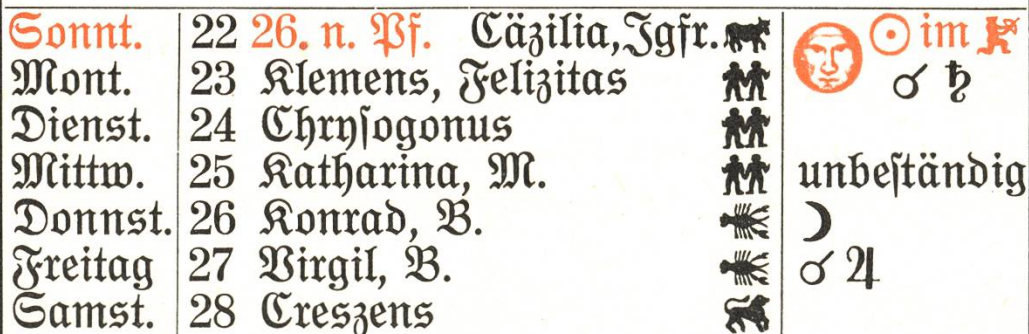 Sonnt. 22 26. n. Pf. Cäzilia, Jgfr. ☉ im
Mont. 23 Klemens, Felizitas ☌ ♄
Dienst. 24 Chryſogonus
Mittw. 25 Katharina, M. unbeſtändig
Donnst. 26 Konrad, B. ☽
Freitag 27 Virgil, B. ☌ ♃
Samst. 28 Creszens